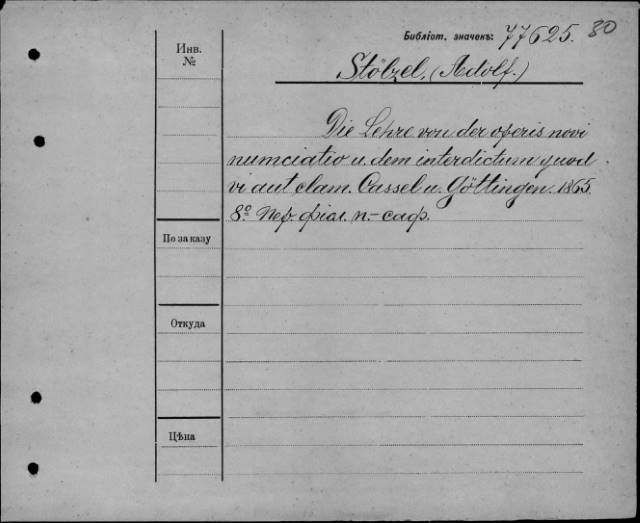 Библіот. значекъ: 77625. 80
Инв.
№
Stölzel, (Adolf.)
Die Lehre von der operis novi
nunciatio u. dem interdictum quod
vi aut clam. Cassel u. Göttingen. 1865.
8º. Пер. фіол. п.-саф.
По заказу
Откуда
Цѣна